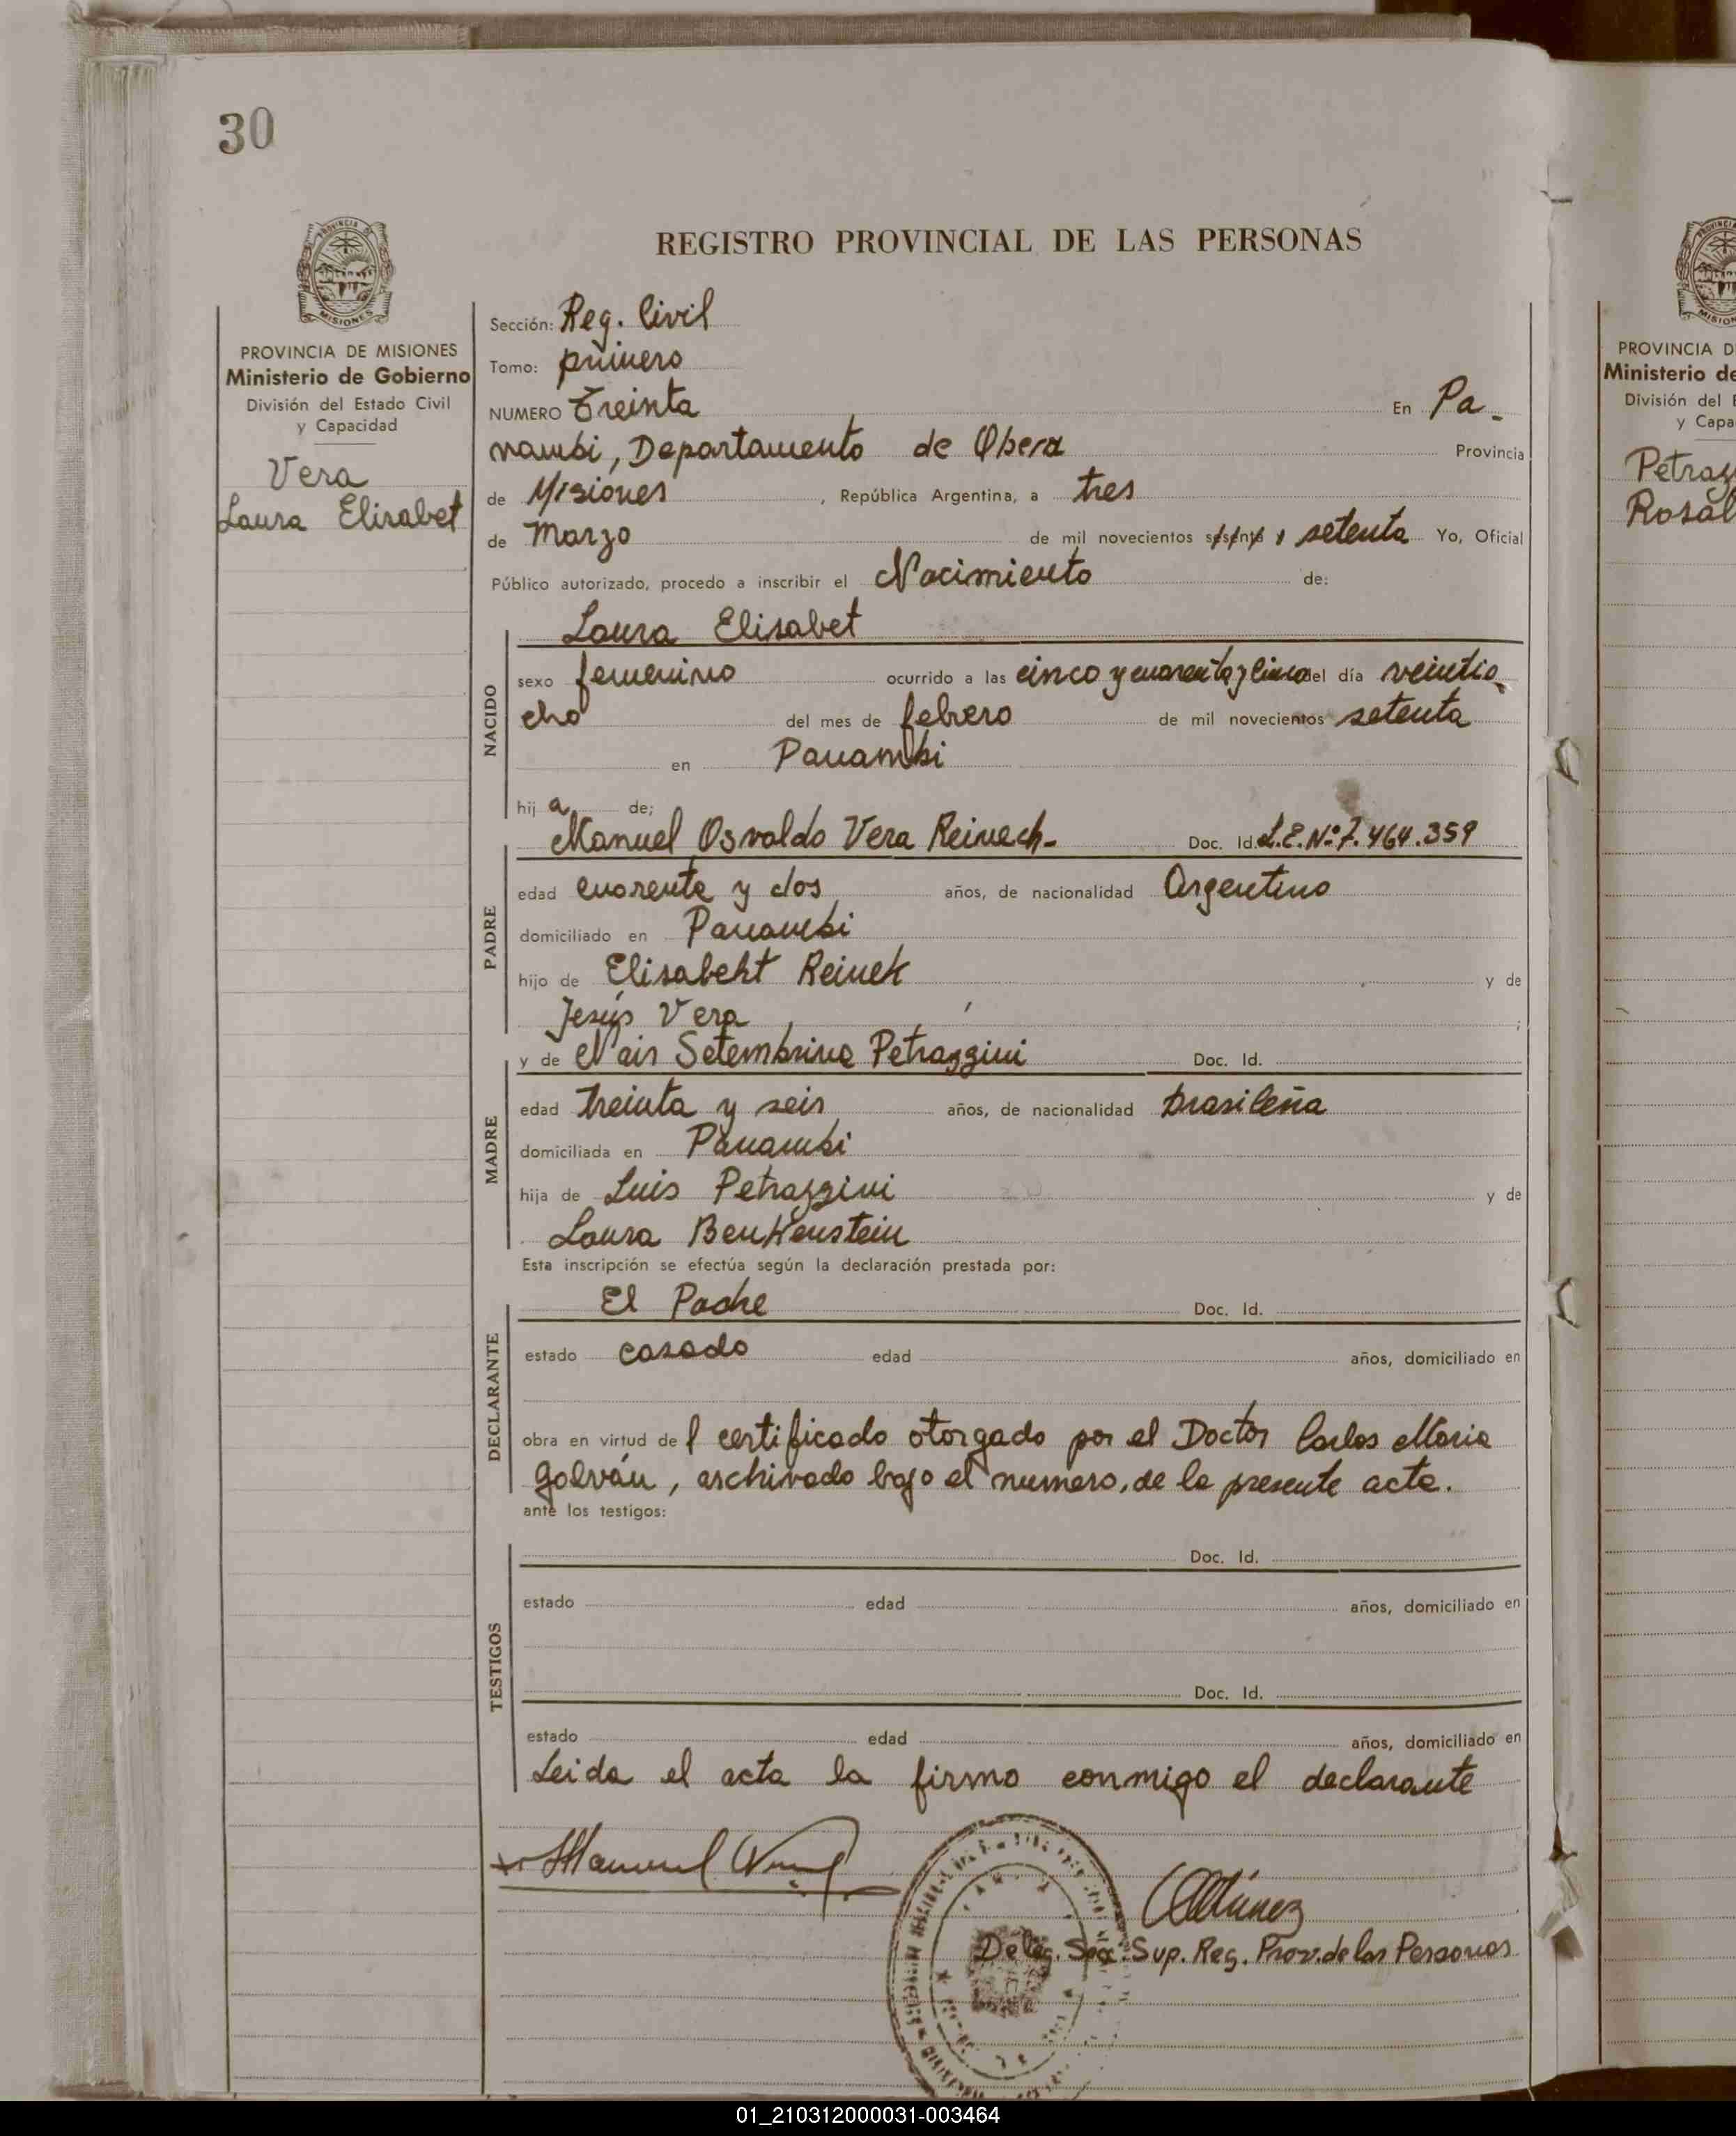 30
REGISTRO PROVINCIAL DE LAS PERSONAS
PROVINCIA DE MISIONES
Ministerio de Gobierno
División del Estado Civil
y Capacidad
Vera
Laura Elisabet
Sección: Reg. Civil
Tomo: primero
NUMERO Treinta En Pa-
nambi, Departamento de Obera Provincia
de Misiones, República Argentina, a tres
de Marzo de mil novecientos sesenta y setenta Yo, Oficial
Público autorizado, procedo a inscribir el Nacimiento de:
NACIDO
Laura Elisabet
sexo femenino ocurrido a las cinco y cuarenta y cinco del día veintio
cho del mes de febrero de mil novecientos setenta
en Panambi
hij a de;
PADRE
Manuel Osvaldo Vera Reinech- Doc. Id. L.E.Nº7.464.359
edad cuarenta y dos años, de nacionalidad Argentino
domiciliado en Panambi
hijo de Elisabeht Reinek y de
Jesús Vera ;
MADRE
y de Nair Setembrina Petrazzini Doc. Id.
edad treinta y seis años, de nacionalidad brasileña
domiciliada en Panambi
hija de Luis Petrazzini y de
Laura Benkenstein
Esta inscripción se efectúa según la declaración prestada por:
DECLARANTE
El Padre Doc. Id.
estado casado edad años, domiciliado en
obra en virtud de l certificado otorgado por el Doctor Carlos Maria
Galván, archivado bajo el numero, de la presente acta.
ante los testigos:
TESTIGOS
Doc. Id.
estado edad años, domiciliado en
Doc. Id.
estado edad años, domiciliado en
Leida el acta la firma conmigo el declarante
Manuel
Deleg. Sec. Sup. Reg. Prov. de las Personas
PROVINCIA D
Ministerio de
División del E
y Capa
Petraz
Rosal
01_210312000031-003464